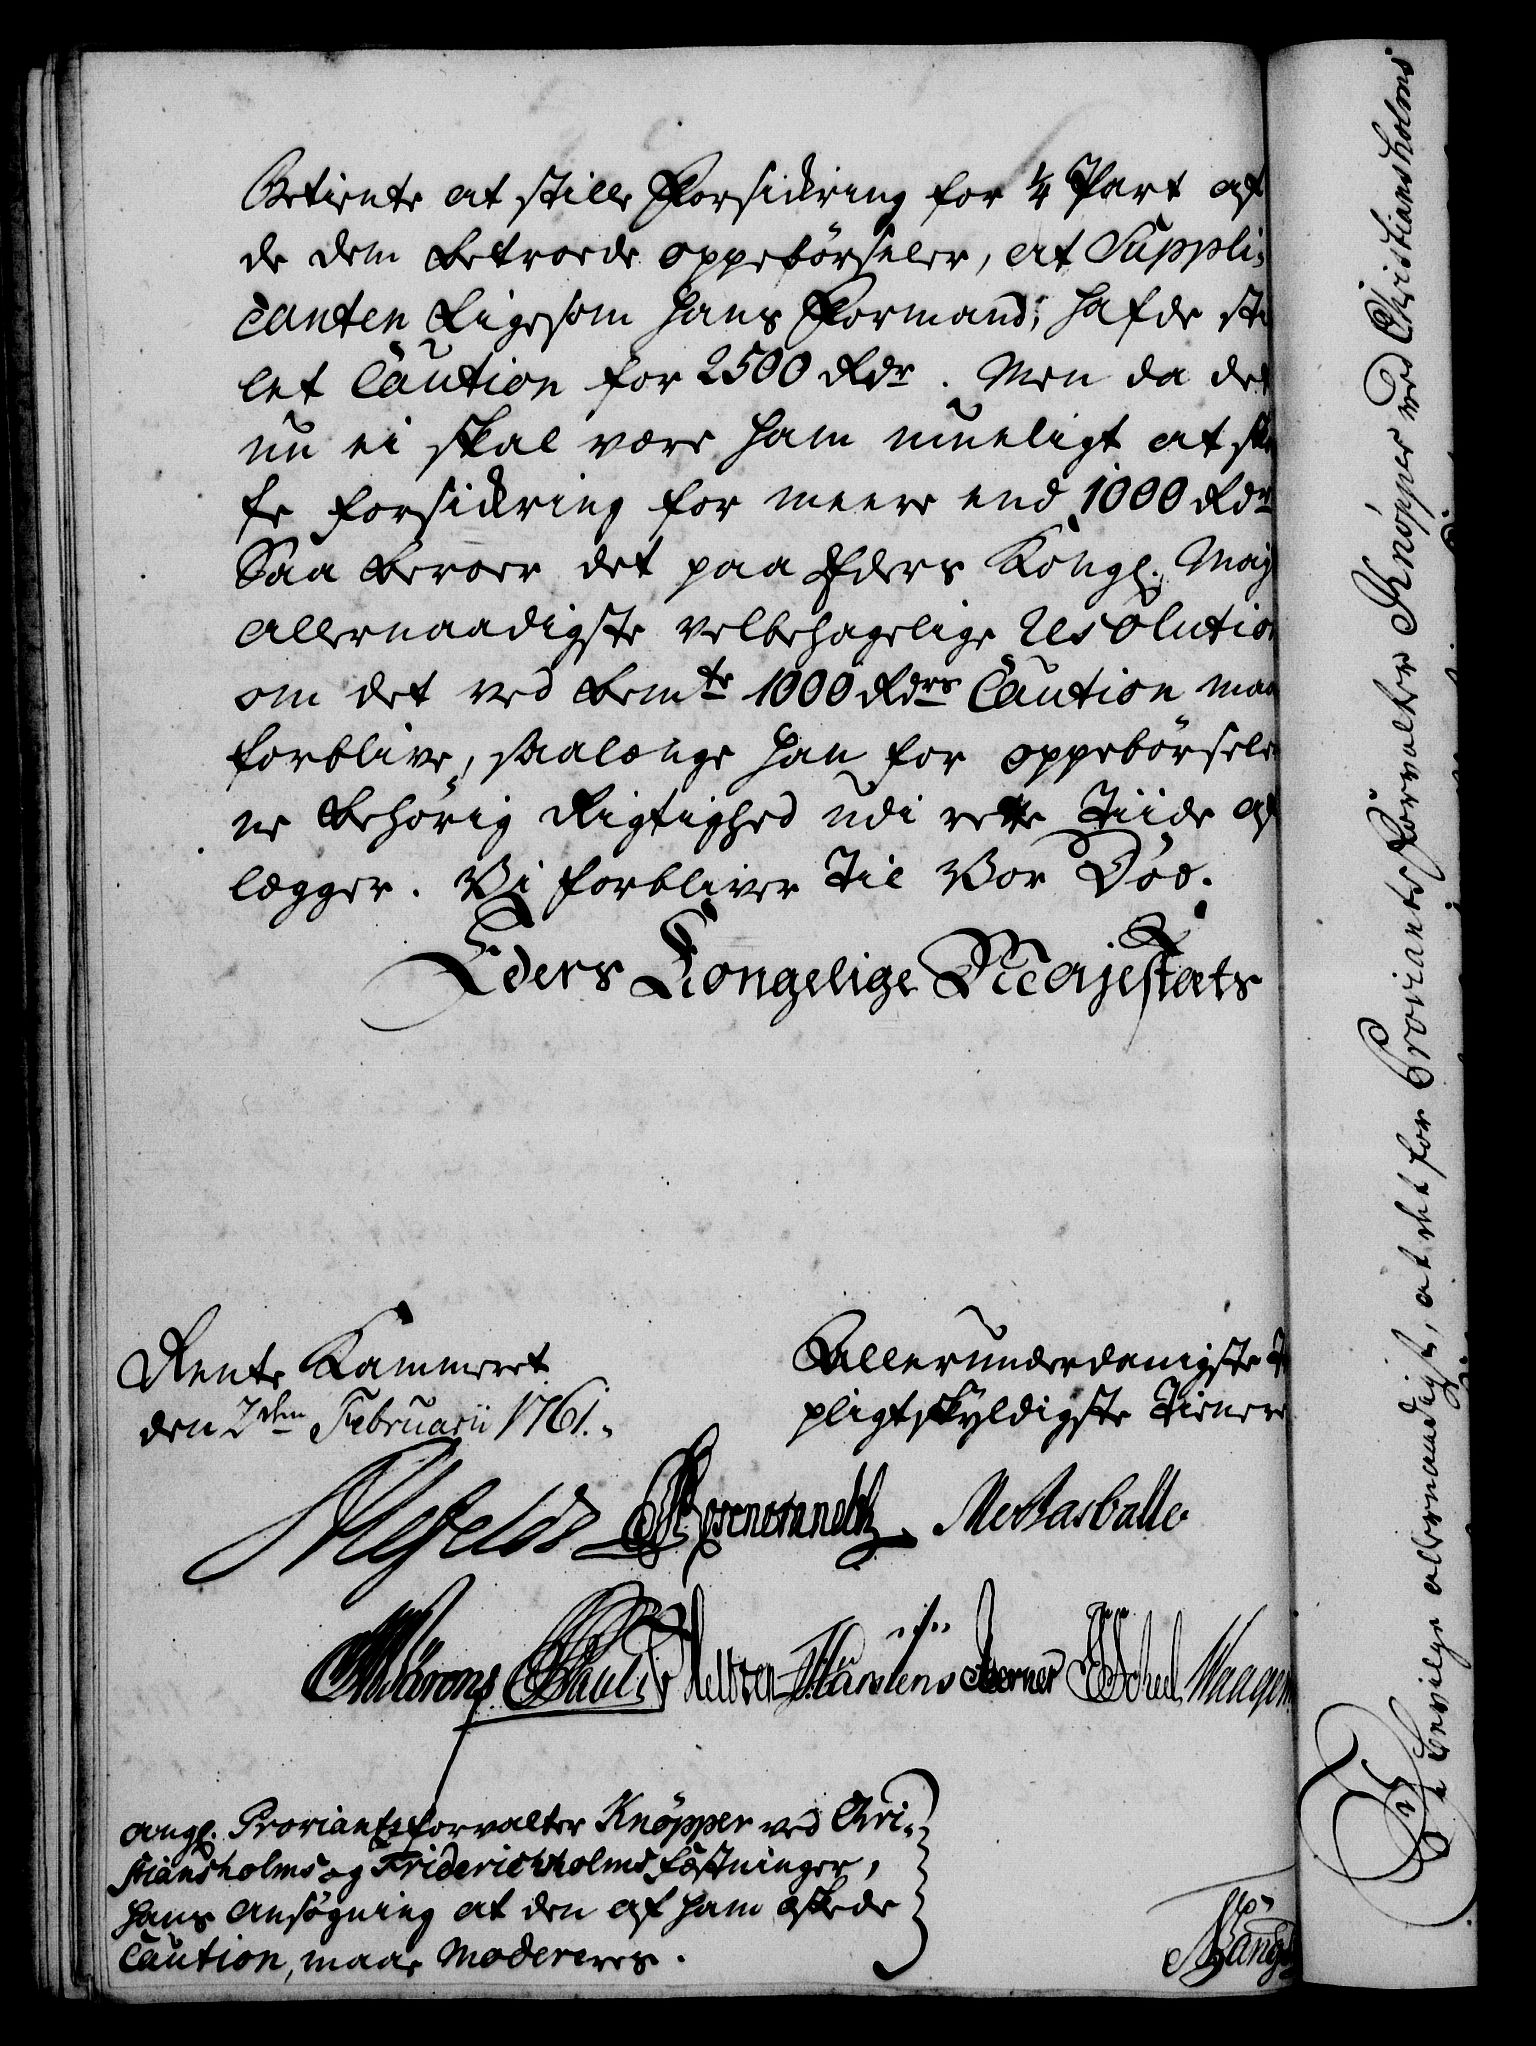 Betiente at stille Forsikring for 1/4 Part af
de dem betroede oppebörseler, at Suppli-
canten ligesom hans Formand, hafde sti
let Caution for 2500 Rdr. Men da det
nu ei skal være ham mueligt at ska
fe forsikring for meere end 1000 Rdr
Saa beroer det paa Eders Kongl. May
allernaadigste velbehagelige Resolution
om det ved bemte 1000 Rdrs Caution maa
forblive, saalænge han for oppebörseler
ne behörig Rigtighed udi rette Tiide af
lægger. Vi forbliver til Vor Död.
Eders Kongelige Majestæts
Rente Kammeret
den 7den Februarii 1761.
Allerunderdanigste
pligtskyldigste Tienere
Ahlefeldt Rosencrandtz
Pauli Heltzen Karstens Berner
angl. Proviantsforvalter Knöpper ved Chri-
stiansholms og Friderichholms fæstninger,
hans ansögning at den af ham æskede
Caution, maae modereres.
bevilge allernaadigst, at det for Proviantsforvalter Knöpper ved Christiansholms